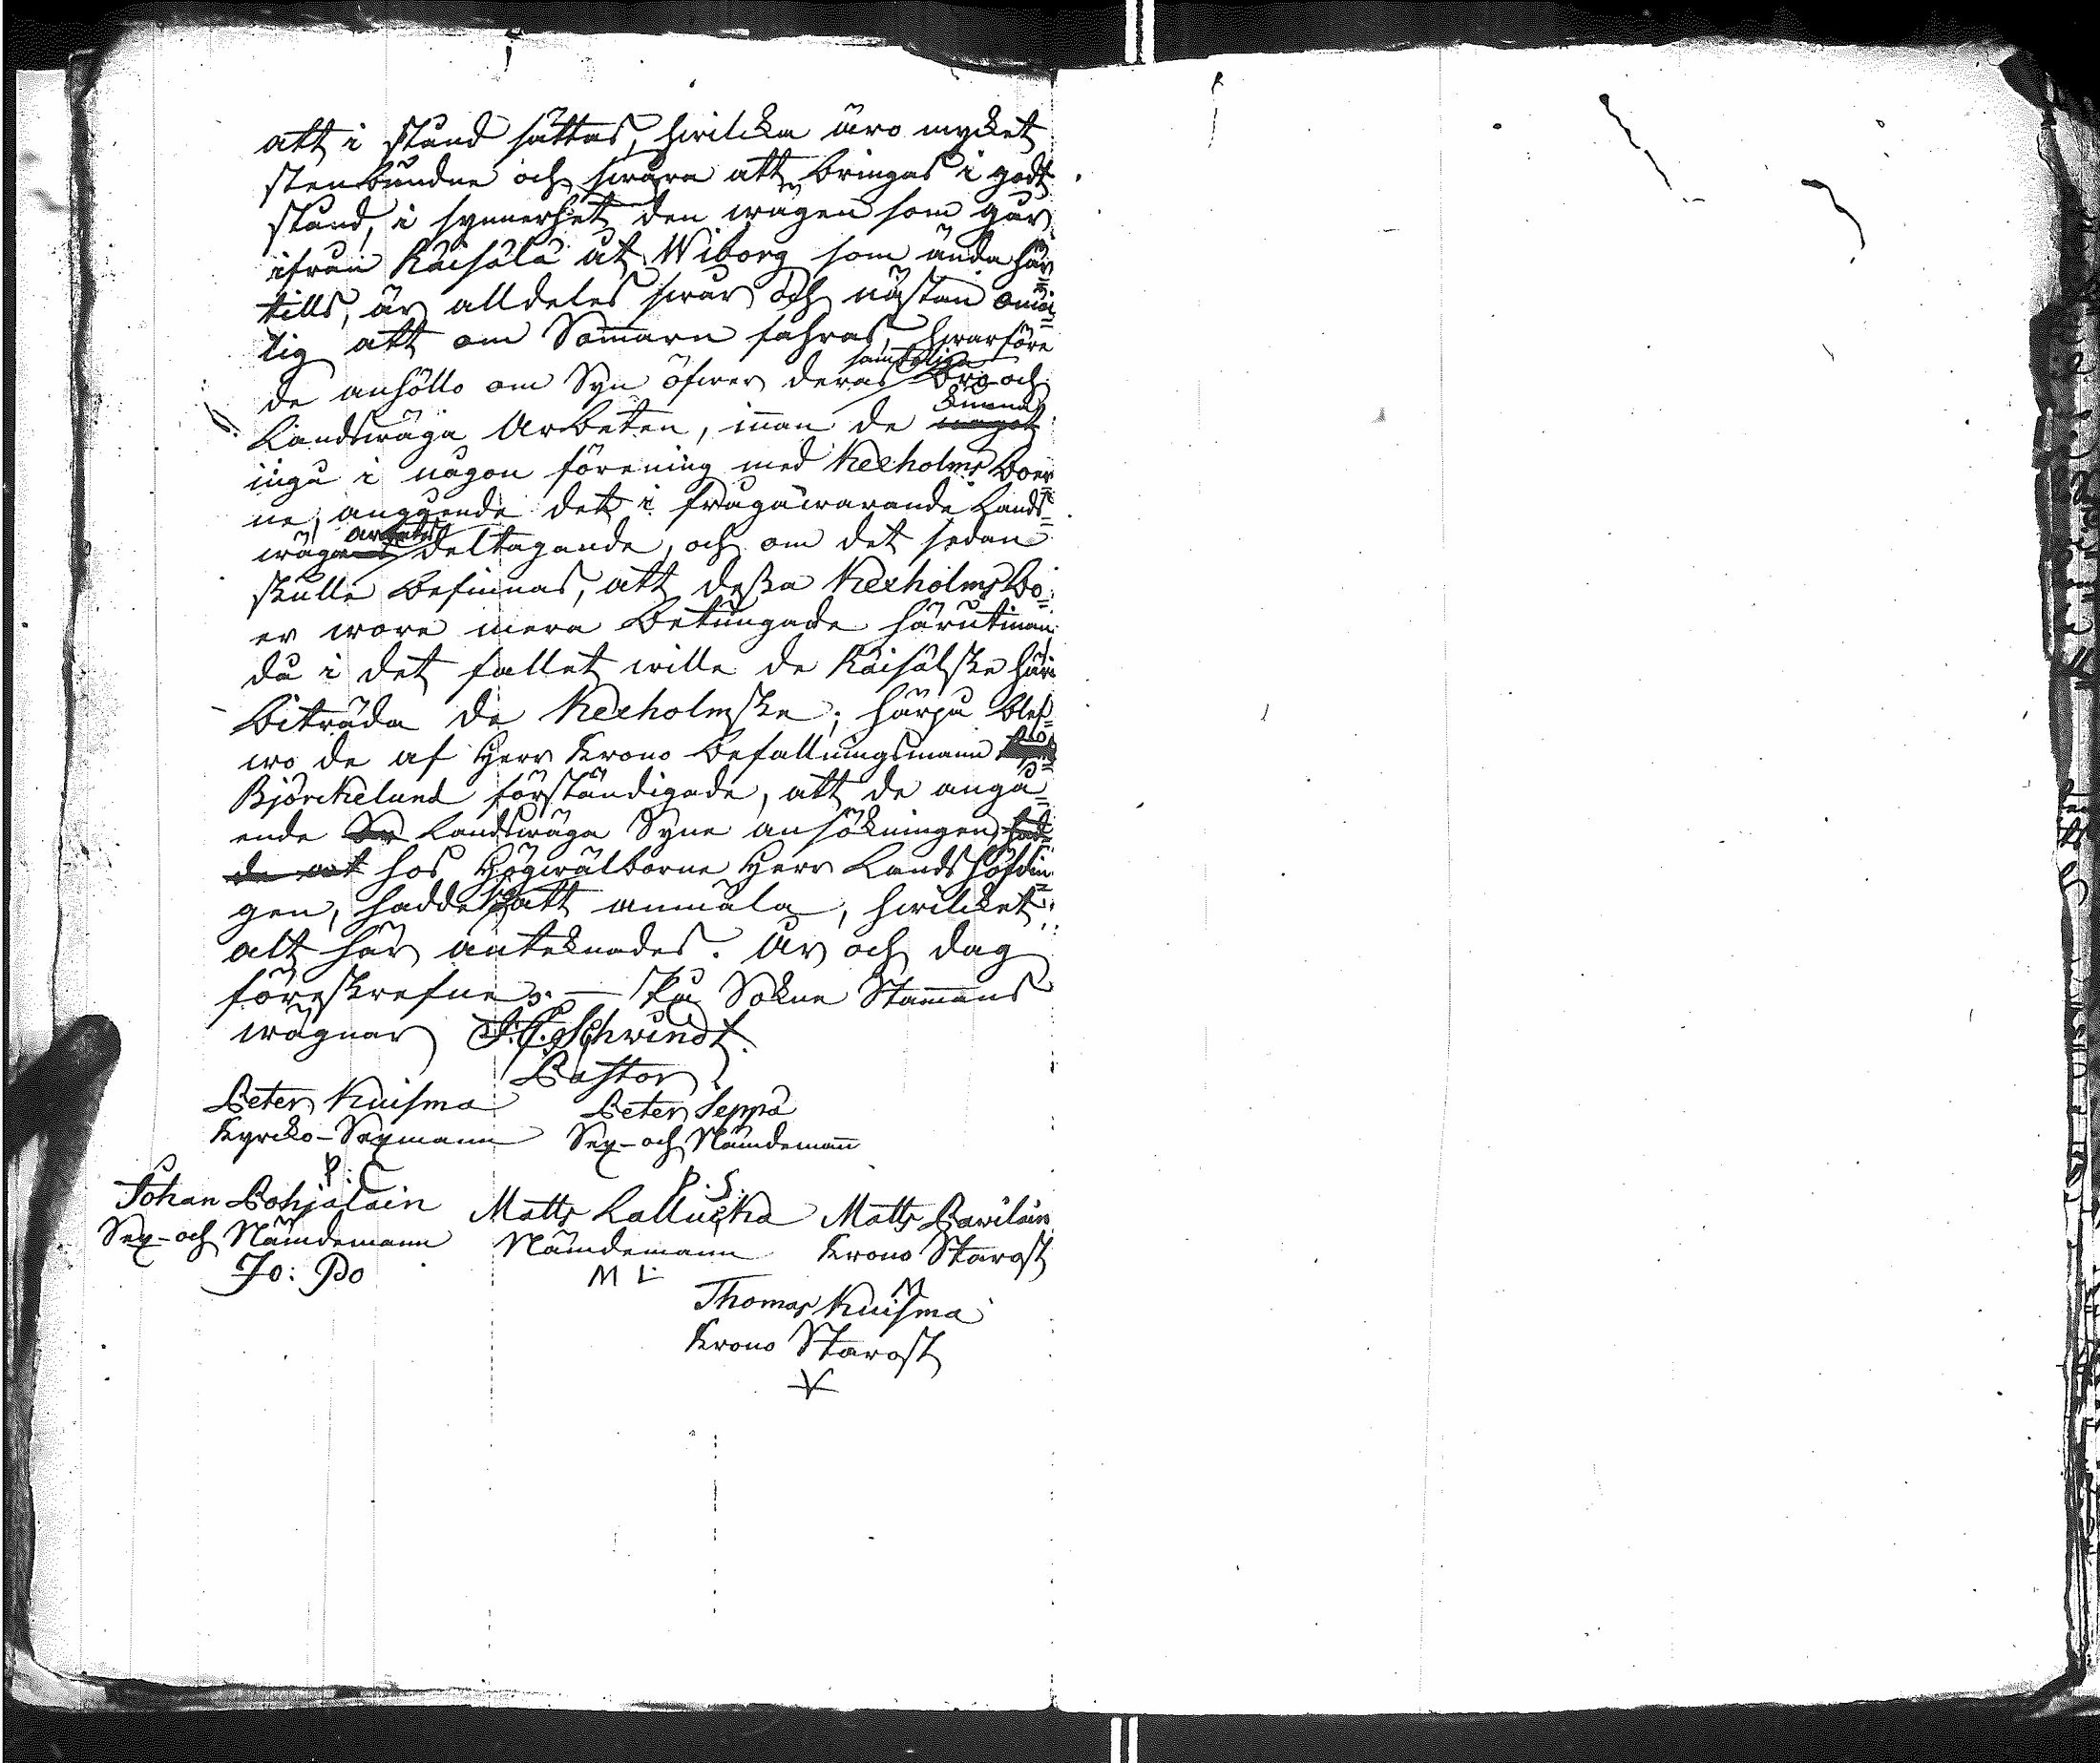 att i stånd sättas, hwilcka äro mycket
stenbundne och swåra att bringas i godt
stånd, i synnerhet den wägen som går
ifrån Räisälä åt Wiborg som ända här=
tills, är alldeles swår och nästan omöj=
lig att om Som̄arn fahras, hwarföre
de anhöllo om Syn öfwer deras samtelige Bro och
Landswäga Arbeten, innan de något kunna
ingå i någon förening med Kexholms Boer=
ne, angående det i frågawarande Lands=
wägens arbetes deltagande, och om det sedan
skulle befinnas, att deßa Kexholms Bo=
er wore mera betungade härutinnan
då i det fallet wille de Räisälske häri
biträda de Kexholmske; härpå blef=
wo de af Herr Krono Befallningsmann
Björckelund förständigade, att de angå=
ende Sy Landswäga Syne ansökningen, had=
de att hos Högwälborne Herr Landshöfdin=
gen, hadde att anmäla, hwilcket
alt här anteknades. År och dag
föreskrefne. — På Sokne Stämmans
wägnar J. C. Schwindt.
Pastor
Peter Kuisma Peter Seppä
Kyrcko-Sexmann Sex- och Nämdeman̄
P. C P. S.
Johan Pohjalain Matts Lallucka Matts Pavilain
Sex- och Nämdemann Nämdemann Krono Starost
Jo: Po M L M
Thomas Kuisma
Krono Starost